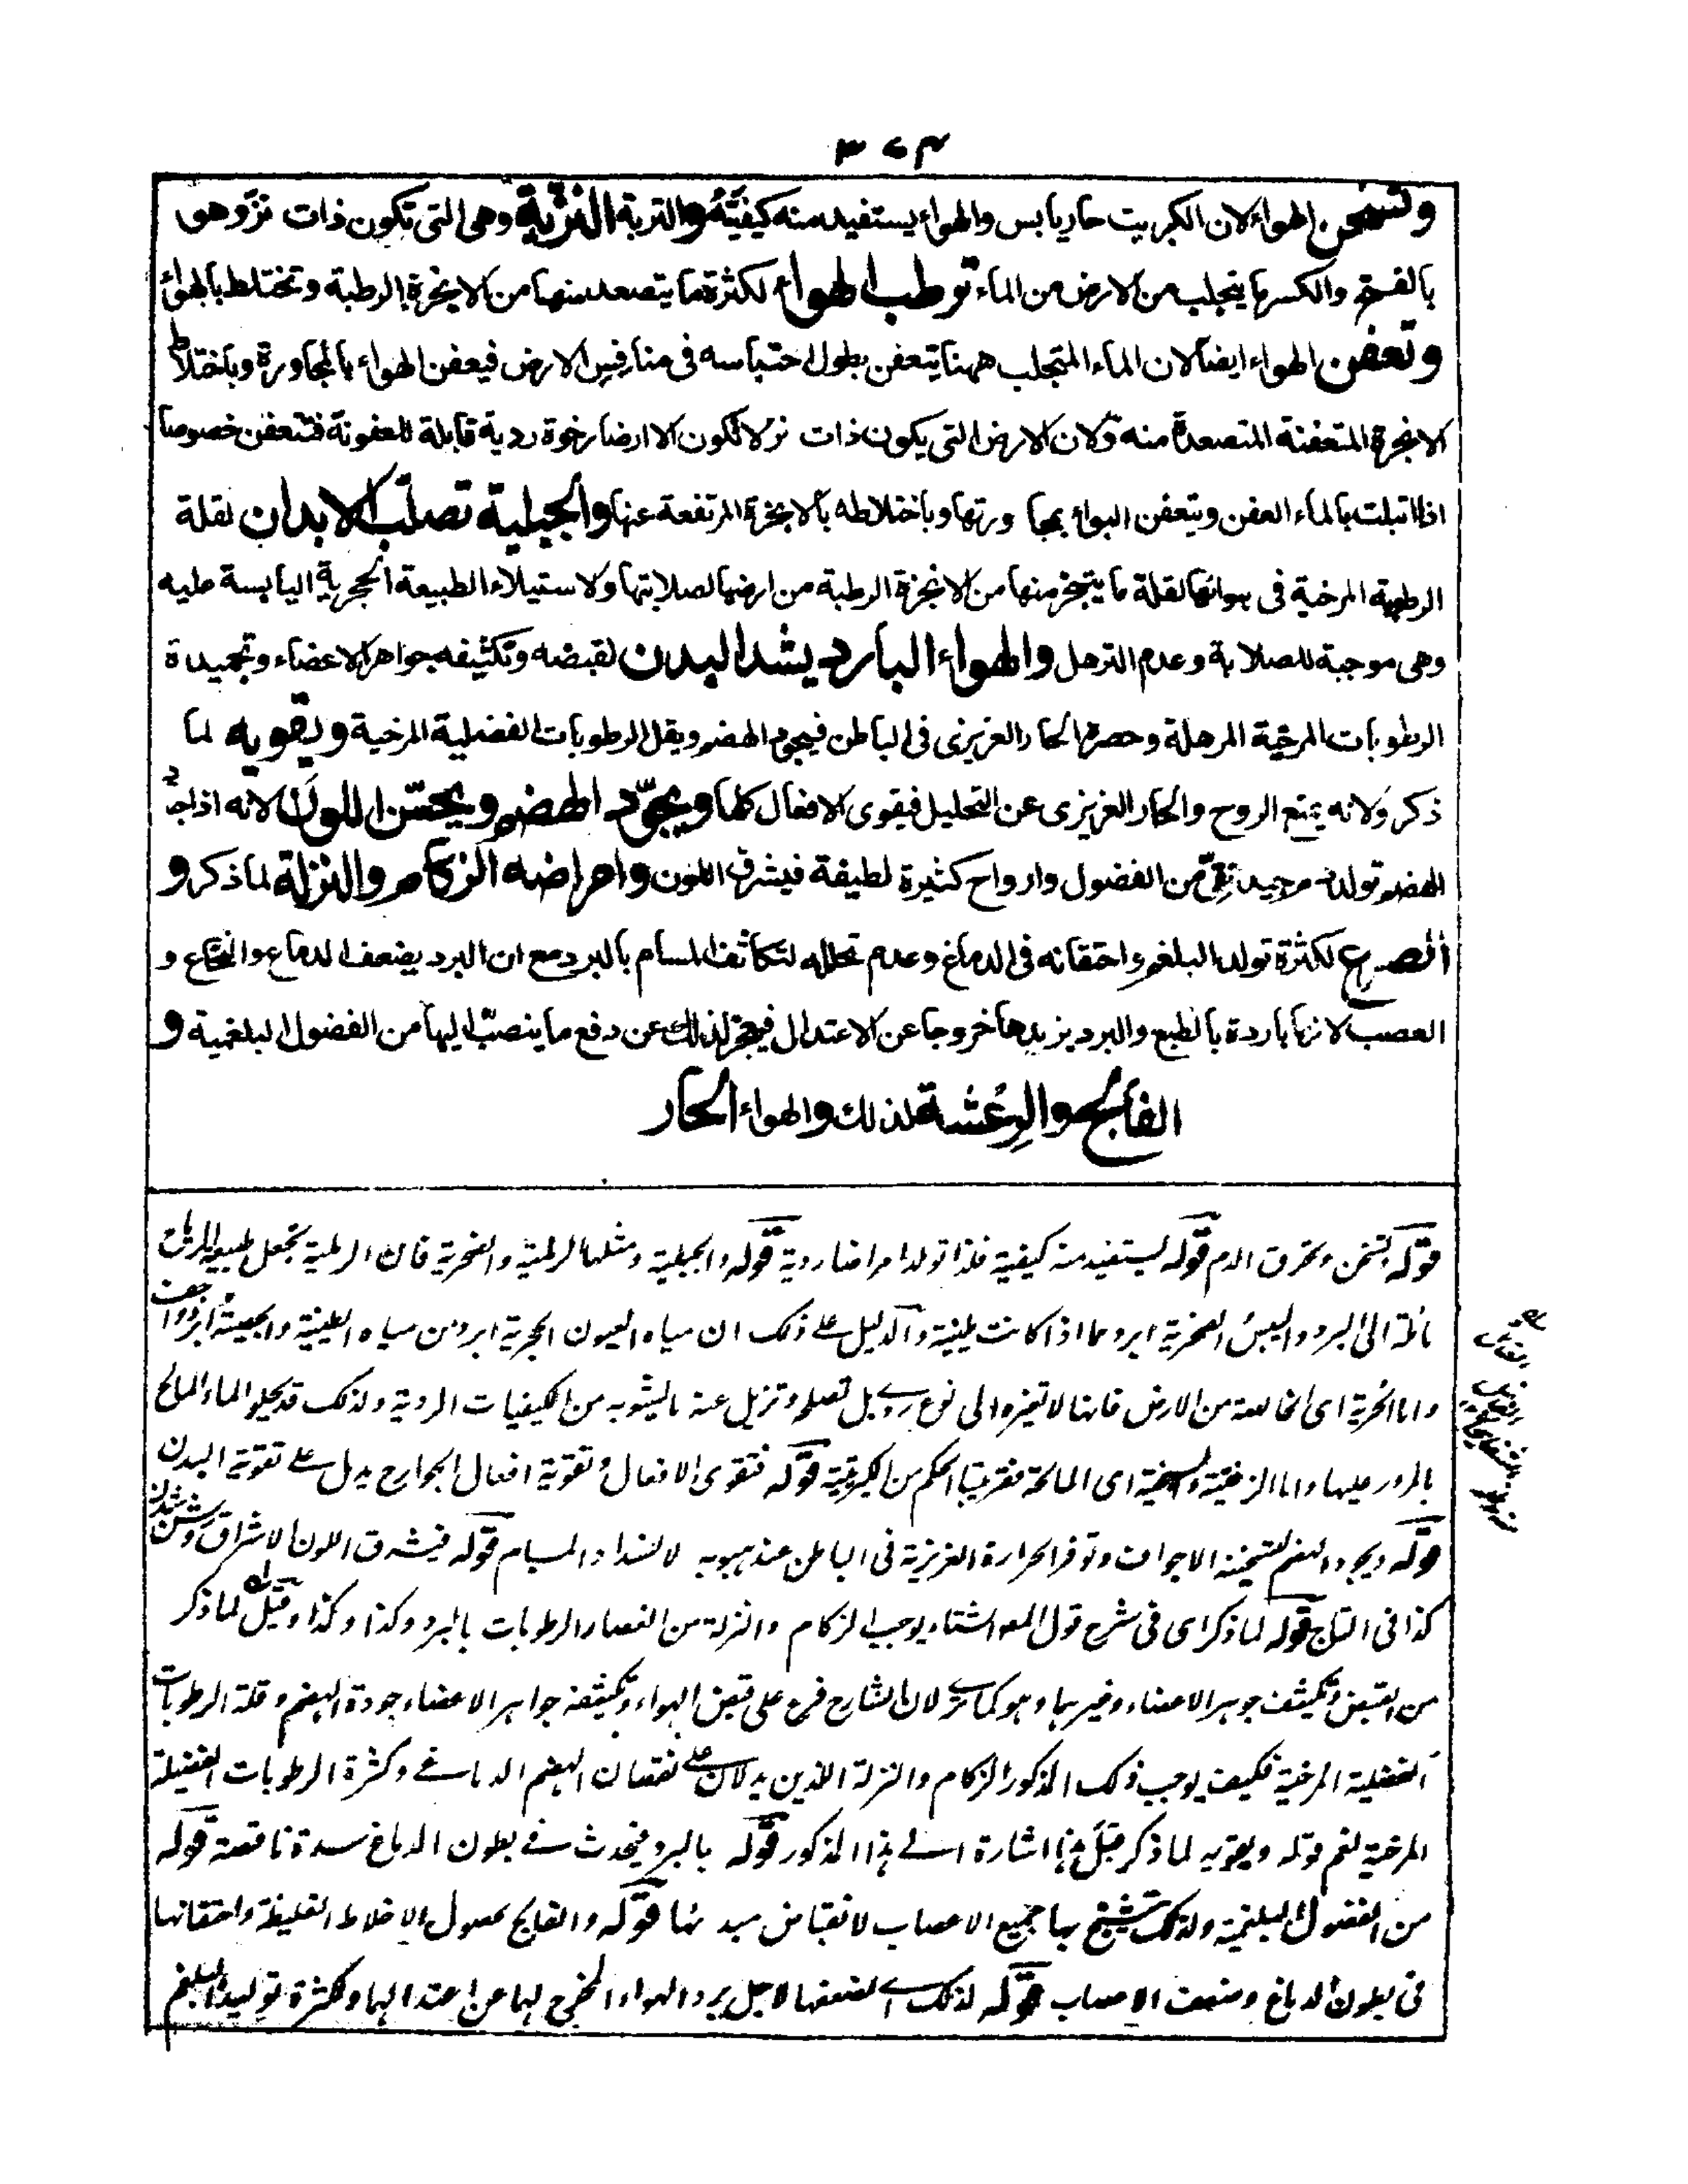 وتسخن الهواء لان الكبريت حار يابس والهواء يستفيد منه كيفيته والتربة النزية وهى التى تكون ذات نز وهو
بالفتح والكسر ما يتجلب من الارض من الماء ترطب الهواء لكثرة ما يتصعد منها من الابخرة الرطبة وتختلط بالهواء
وتعفن الهواء ايضا لان الماء المتجلب ههنا يتعفن بطول احتباسه فى منافس الارض فيعفن الهواء بالمجاورة وباختلاط
الابخرة المتعفنة المتصعدة منه ولان الارض التى يكون ذات نز لا تكون الا ارضا رخوة ردية قابلة للعفونة فتتعفن خصوصا
اذا ابتلت بالماء العفن ويتعفن الهواء بمجاورتها وباختلاطه بالابخرة المرتفعة عنها والجبلية تصلب الابدان لقلة
الرطوبة المرخية فى هوائها لقلة ما يتبخر منها من الابخرة الرطبة من ارضها لصلابتها ولاستيلاء الطبيعة الحجرية اليابسة عليه
وهى موجبة للصلابة وعدم الترهل والهواء البارد يشد البدن لقبضه وتكثيفه جواهر الاعضاء وتجميده
الرطوبات المرخية المرهلة وحصره الحار الغريزى فى الباطن فيجود الهضم ويقل الرطوبات الفضلية المرخية ويقويه لما
ذكر ولانه يمنع الروح والحار الغريزى عن التحليل فيقوى الافعال كلها ويجود الهضم ويحسن اللون لانه اذا جاد
الهضم تولد دم جيد نقى من الفضول وارواح كثيرة لطيفة فيشرق اللون وامراضه الزكام والنزلة لما ذكر و
الصرع لكثرة تولد البلغم واحتقانه فى الدماغ وعدم تحلله لتكاثف المسام بالبرد مع ان البرد يضعف الدماغ والنخاع و
العصب لانها باردة بالطبع والبرد يزيدها خروجا عن الاعتدال فيعجز لذلك عن دفع ما ينصب اليها من الفضول البلغمية و
الفالج والرعشة لذلك والهواء الحار
قوله تسخن وتحرق الدم قوله يستفيد منه كيفية فلذا تولد امراضا ردية قوله والجبلية ومثلها الرملية والصخرية فان الرملية تجعل طبيعة
مائلة الى البرد واليبس الصخرية ابرد مما اذا كانت طينية والدليل على ذلك ان مياه العيون الحجرية ابرد من مياه الطينية
واما الحرية اى الخالصة من الارض فانها لا تغيره الى نوع ردى بل تصلحه وتزيل عنه ما يشوبه من الكيفيات الردية ولذلك قد يحلو الماء المالح
بالمرور عليها واما الزفتية والسبخية اى المالحة فقريبتا الحكم من الكبريتية قوله فتقوى الافعال وتقوية افعال الجوارح يدل على تقوية البدن
قوله ويجود الهضم لتسخينه الاجواف وتوفر الحرارة الغريزية فى الباطن عند هبوبه لانسداد المسام قوله فيشرق اللون الاشراق روشن شدن
كذا فى التاج قوله لما ذكر اى فى شرح قول المص الشتاء يوجب الزكام والنزلة من انعصار الرطوبات بالبرد وكذا وكذا وقيل لما ذكر
من القبض وتكثيف جوهر الاعضاء وغيرهما وهو كما ترى لان الشارح فرع على قبض الهواء وتكثيفه جواهر الاعضاء جودة الهضم وقلة الرطوبات
الفضلية المرخية فكيف يوجب ذلك المذكور الزكام والنزلة اللذين يدلان على نقصان الهضم الدماغى وكثرة الرطوبات الفضلية
المرخية نعم قوله ويقويه لما ذكر قبل هذا اشارة الى هذا المذكور قوله بالبرد فيحدث فى بطون الدماغ سدة ناقصة قوله
من الفضول البلغمية ولذلك تتشنج بها جميع الاعصاب لانقباض مبدئها قوله والفالج لحصول الاخلاط الغليظة واحتقانها
فى بطون الدماغ وضعف الاعصاب قوله لذلك اى لضعفها لاجل برد الهواء المخرج لهما عن اعتدالهما وكثرة توليد البلغم